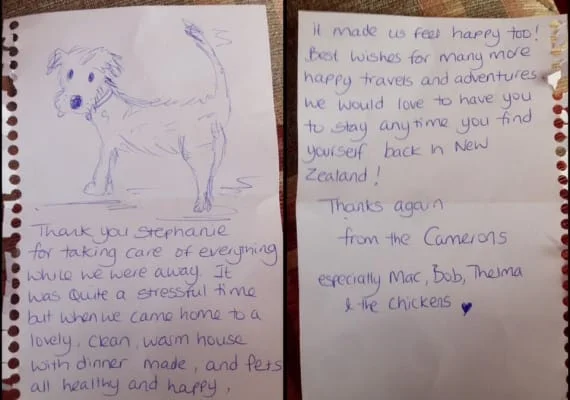 Thank you Stephanie
for taking care of everything
while we were away. It
was quite a stressful time
but when we came home to a
lovely, clean, warm house
with dinner made, and pets
all healthy and happy,
it made us feel happy too!
Best wishes for many more
happy travels and adventures
we would love to have you
to stay anytime you find
yourself back in New
Zealand!
Thanks again
from the Camerons
especially Mac, Bob, Thelma
& the chickens